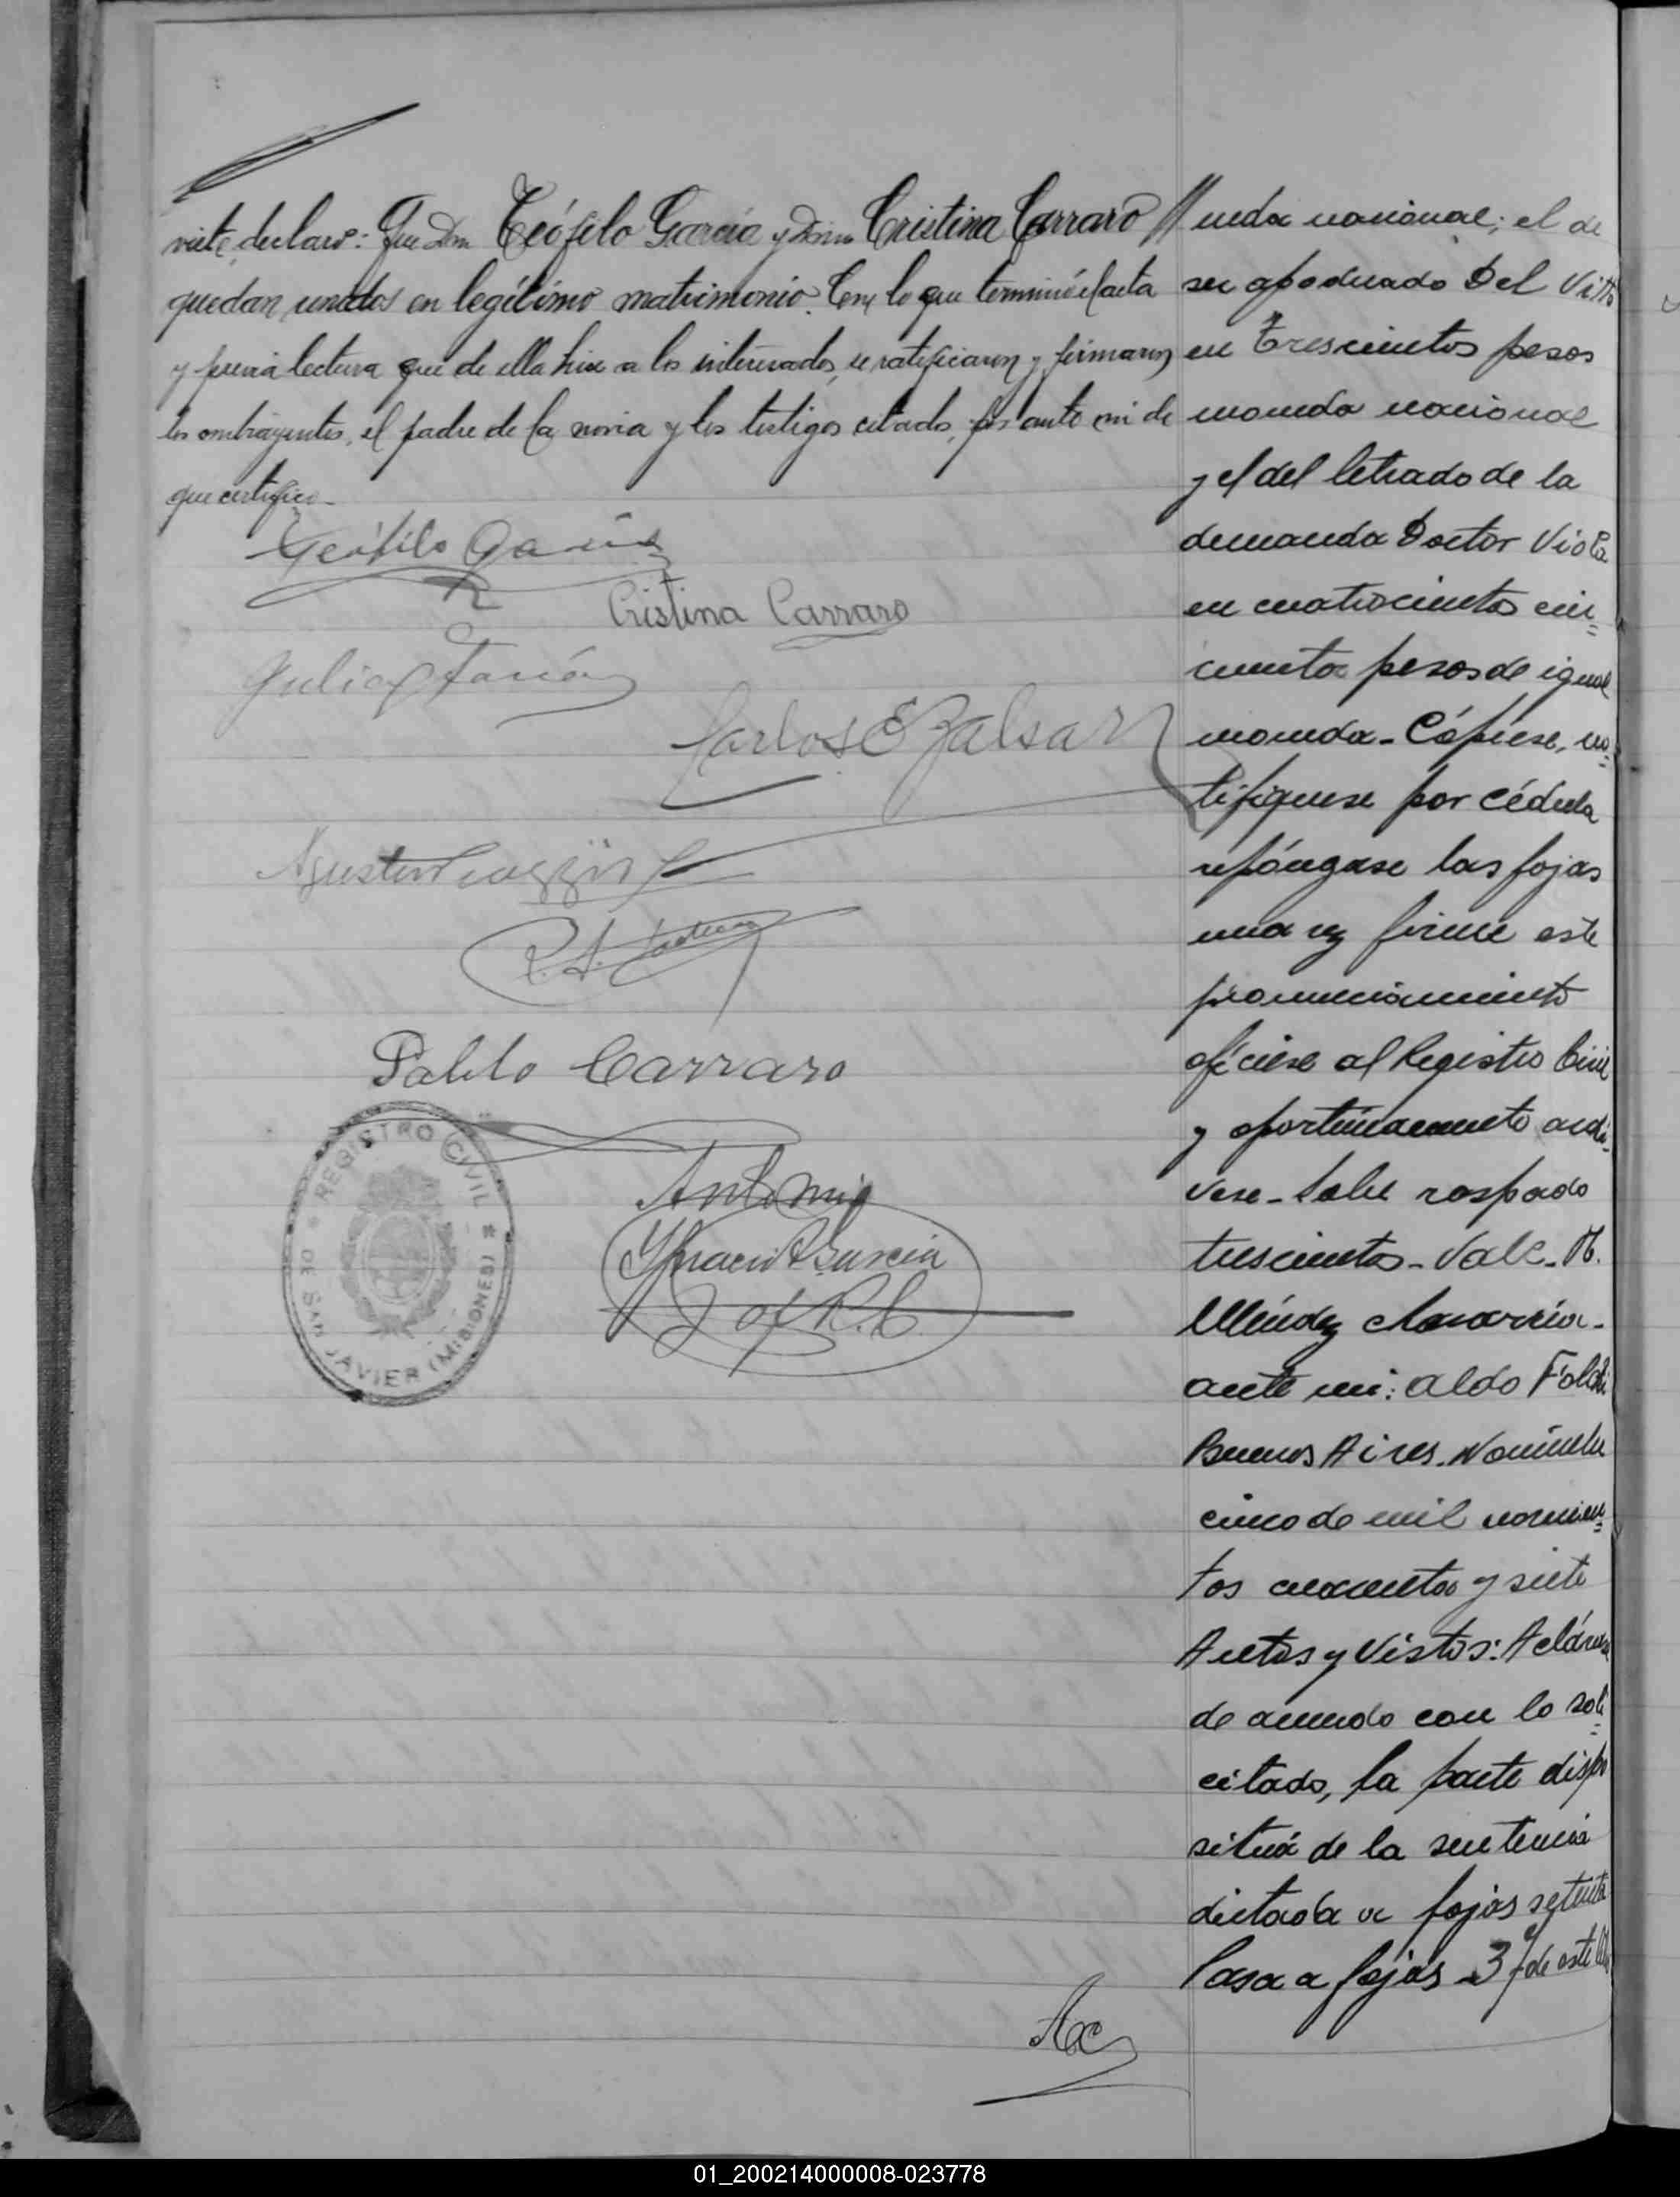 declaro: Que Don Teófilo García y Doña Cristina Carraro
quedan unidos en legítimo matrimonio. Con lo que terminó el acta
y previa lectura que de ella hice a los interesados, se ratificaron y firmaron
los contrayentes, el padre de la novia y los testigos citados, por ante mi de
que certifico_
Teófilo García
Cristina Carraro
Carlos E
Agustin
R. A.
Pablo Carraro
REGISTRO CIVIL
DE SAN JAVIER (MISIONES)
Antonio
Ygnacio García
J of R.C.
// neda nacional; el de
su apoderado Del
en Trescientos pesos
moneda nacional
y el del letrado de la
demanda Doctor Viola
en cuatrocientos cin=
cuenta pesos de igual
moneda_Cópiese, no=
tifíquese por cédula
repóngase las fojas
una vez firme este
pronunciamiento
ofíciese al Registro Civil
y oportunamente archí=
vese_Sobre raspado
trescientos_Vale_M.
Méndez Chavarría_
ante mi: Aldo
Buenos Aires, Noviembre
cinco de mil novecien=
tos cuarenta y siete
Autos y Vistos: Aclárese
de acuerdo con lo soli=
citado, la parte dispo
sitiva de la sentencia
dictada a fojas setenta
Pasa a fojas 37 de este
01_200214000008-023778